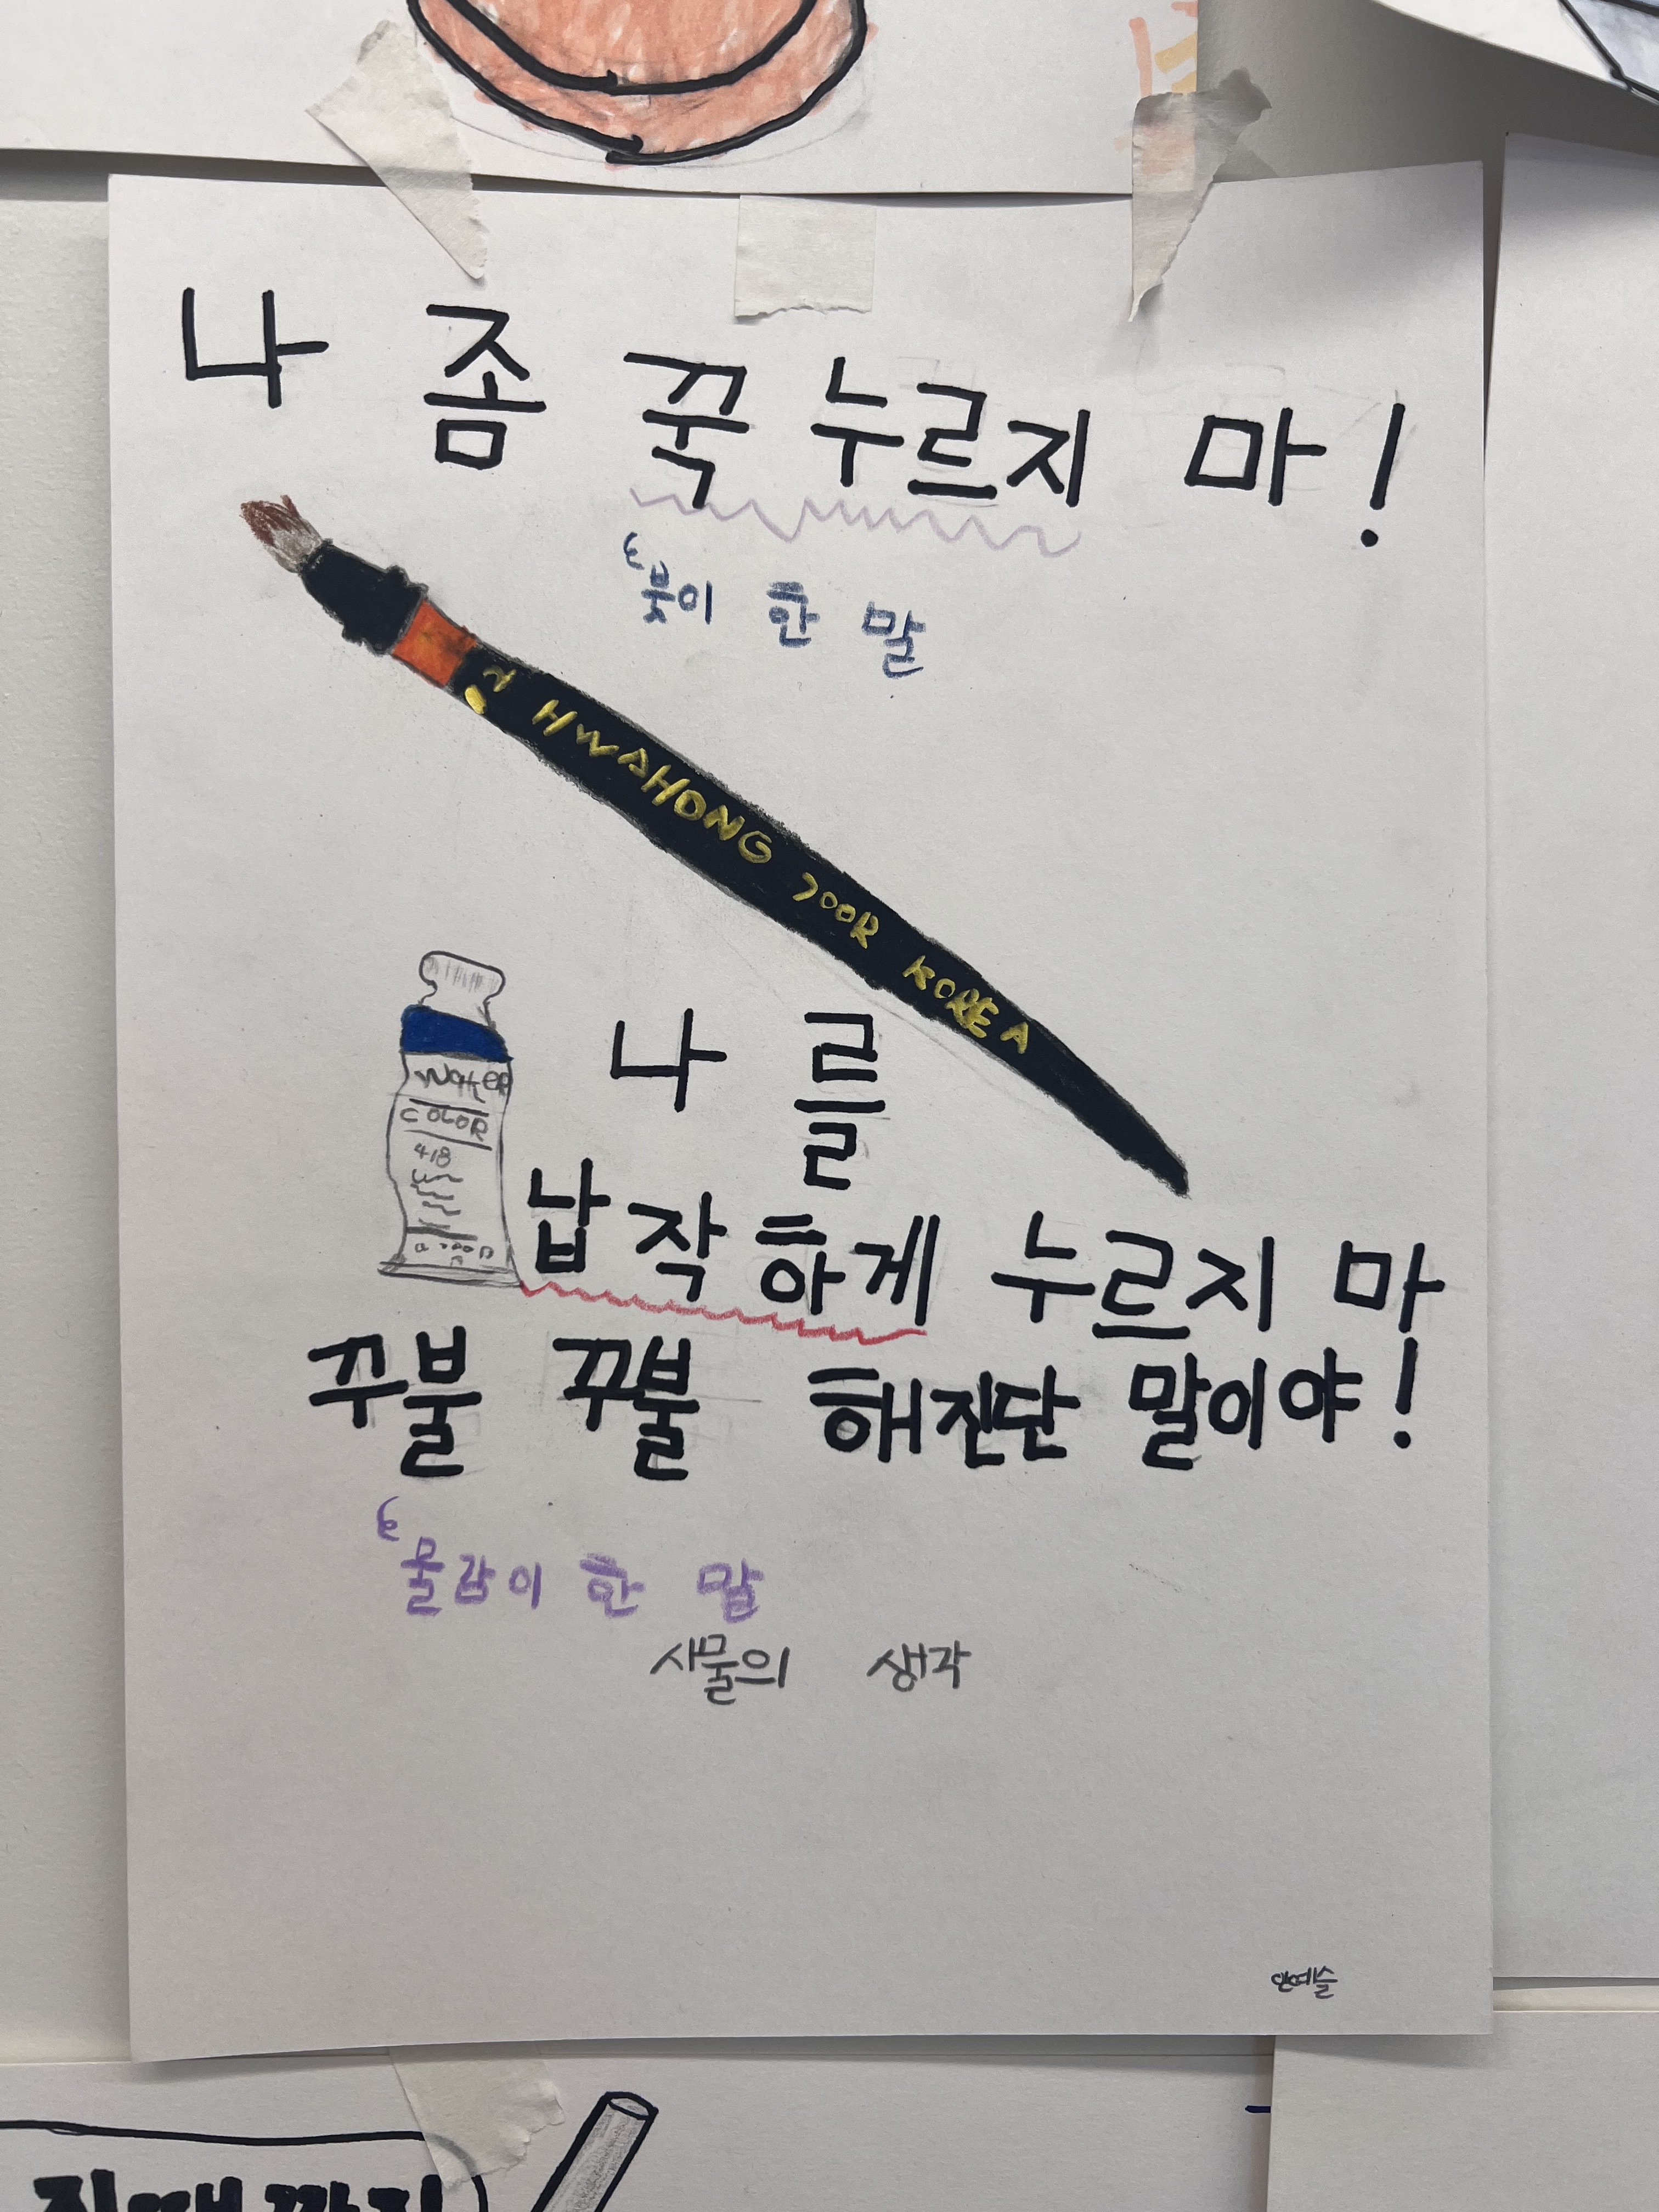 나 좀 꾹 누르지 마!
붓이 한 말
HWAHONG 700R KOREA
WATER
COLOR
418
나 를
납작하게 누르지 마
꾸불 꾸불 해진단 말이야!
물감이 한 말
사물의 생각
안예슬